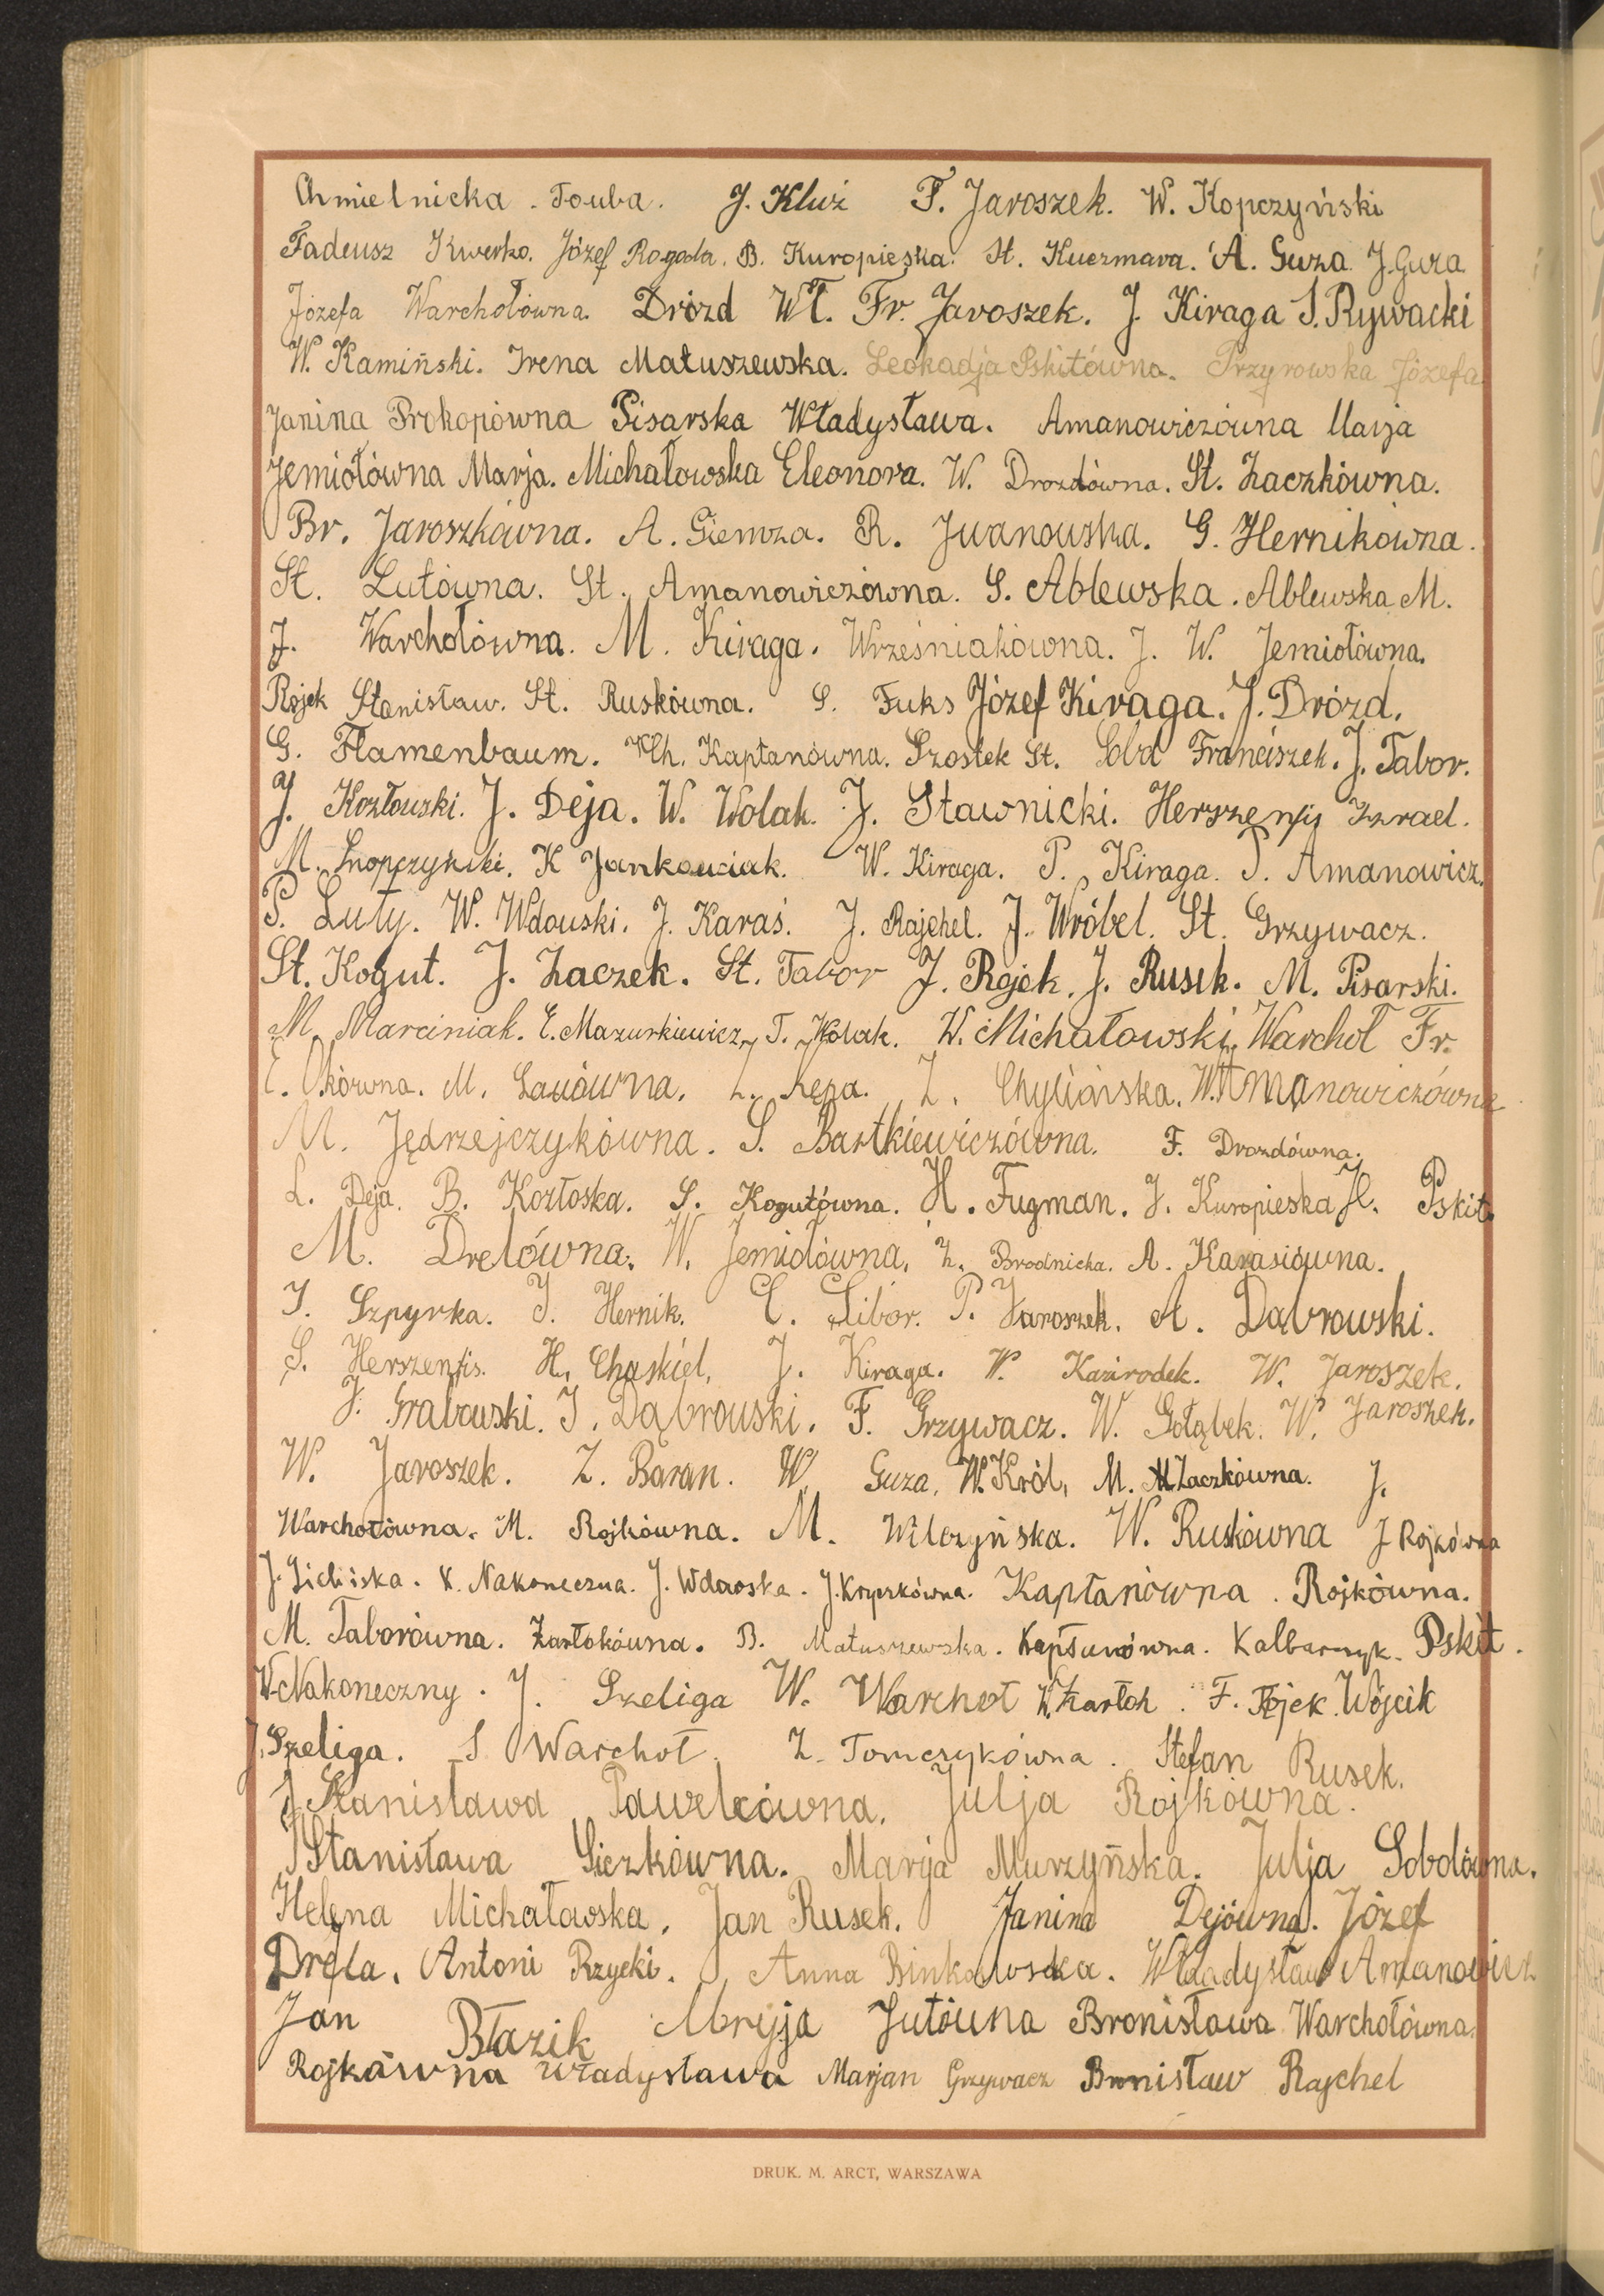 Chmielnicka . Touba. J. Kluź F. Jaroszek. W. Kopczyński
Tadeusz Kwerko. Józef Rogoda. B. Kuropieska. St. Kuczmara. A. Guza J. Guza
Józefa Warchołówna. Drózd Wł. Fr. Jaroszek. J. Kiraga S. Rywacki
W. Kamiński. Irena Matuszewska. Leokadja Pskitówna. Przyrowska Józefa
Janina Prokopówna Pisarska Władysława. Amanowiczówna Marja
Jemiołówna Marja. Michałowska Eleonora. W. Drozdówna. St. Żaczkówna.
Br. Jaroszkówna. A. Giemza. R. Iwanowska. G. Hernikówna.
St. Lutówna. St. Amanowiczówna. S. Ablewska. Ablewska M.
J. Warchołówna. M. Kiraga. Wrześniakówna. J. W. Jemiołówna.
Rojek Stanisław. St. Ruskówna. S. Fuks Józef Kiraga. J. Drózd.
G. Flamenbaum. Ch. Kapłanówna. Szostek St. Soba Franciszek. J. Tabor.
J. Kozłowski. J. Deja. W. Wolak. J. Stawnicki. Herszenfis Izrael.
M. Snopczyński. K Jankowiak. W. Kiraga. P. Kiraga. P. Amanowicz.
P. Luty. W. Wdowski. J. Karaś. J. Rajchel. J. Wróbel. St. Grzywacz.
St. Kogut. J. Żaczek. St. Tabor J. Rojek. J. Rusek. M. Pisarski.
M. Marciniak. E. Mazurkiewicz, T. Wolak. W. Michałowski, Warchoł Fr.
M. Rępa. Z. Chylińska. W. Amanowiczówna
M. Jędrzejczykówna. S. Bartkiewiczówna. F. Drozdówna.
L. Deja. B. Kozłoska. S. Kogutówna. H. Fugman. J. Kuropieska H. Pskit.
M. Drelówna. W. Jemiołówna. Z. Brodnicka. A. Karasiówna.
J. Szpyrka. J. Hernik. C. Libor. P. Jaroszek. A. Dąbrowski.
S. Herszenfis. H. Chaskiel. J. Kiraga. W. Kazirodek. W. Jaroszek.
J. Grabowski. J. Dąbrowski. F. Grzywacz. W. Gołąbek. W. Jaroszek.
W. Jaroszek. Z. Baran. W. Guza. W. Król, M. M. Żaczkówna. J.
Warchołówna. M. Rojkówna. M. Wilczyńska. W. Ruskówna J Rojkówna
J. K. Nakoneczna. J. Wdowska. Kapłanówna. Rojkówna.
M. Taborówna. Żartokówna. B. Matuszewska. Kapłanówna. Kalbarczyk. Pskit.
W. Nakoneczny. J. Szeliga W. Warchoł W. Żarłok. F. Rojek. Wójcik
J. Szeliga. S Warchoł. Z. Tomczykówna. Stefan Rusek.
Stanisława Pawelcówna. Julja Rojkówna.
Stanisława Sieczkówna. Marija Murzyńska. Julja Sobolówna.
Helena Michałowska. Jan Rusek. Janina Dejówna. Józef
Dreła. Antoni Rzycki. Anna Binkowska. Władysław Amanowicz
Jan Błazik Mryja Lutówna Bronisława Warchołówna.
Rojkówna Władysława Marjan Grzywacz Bronisław Rajchel
DRUK. M. ARCT, WARSZAWA